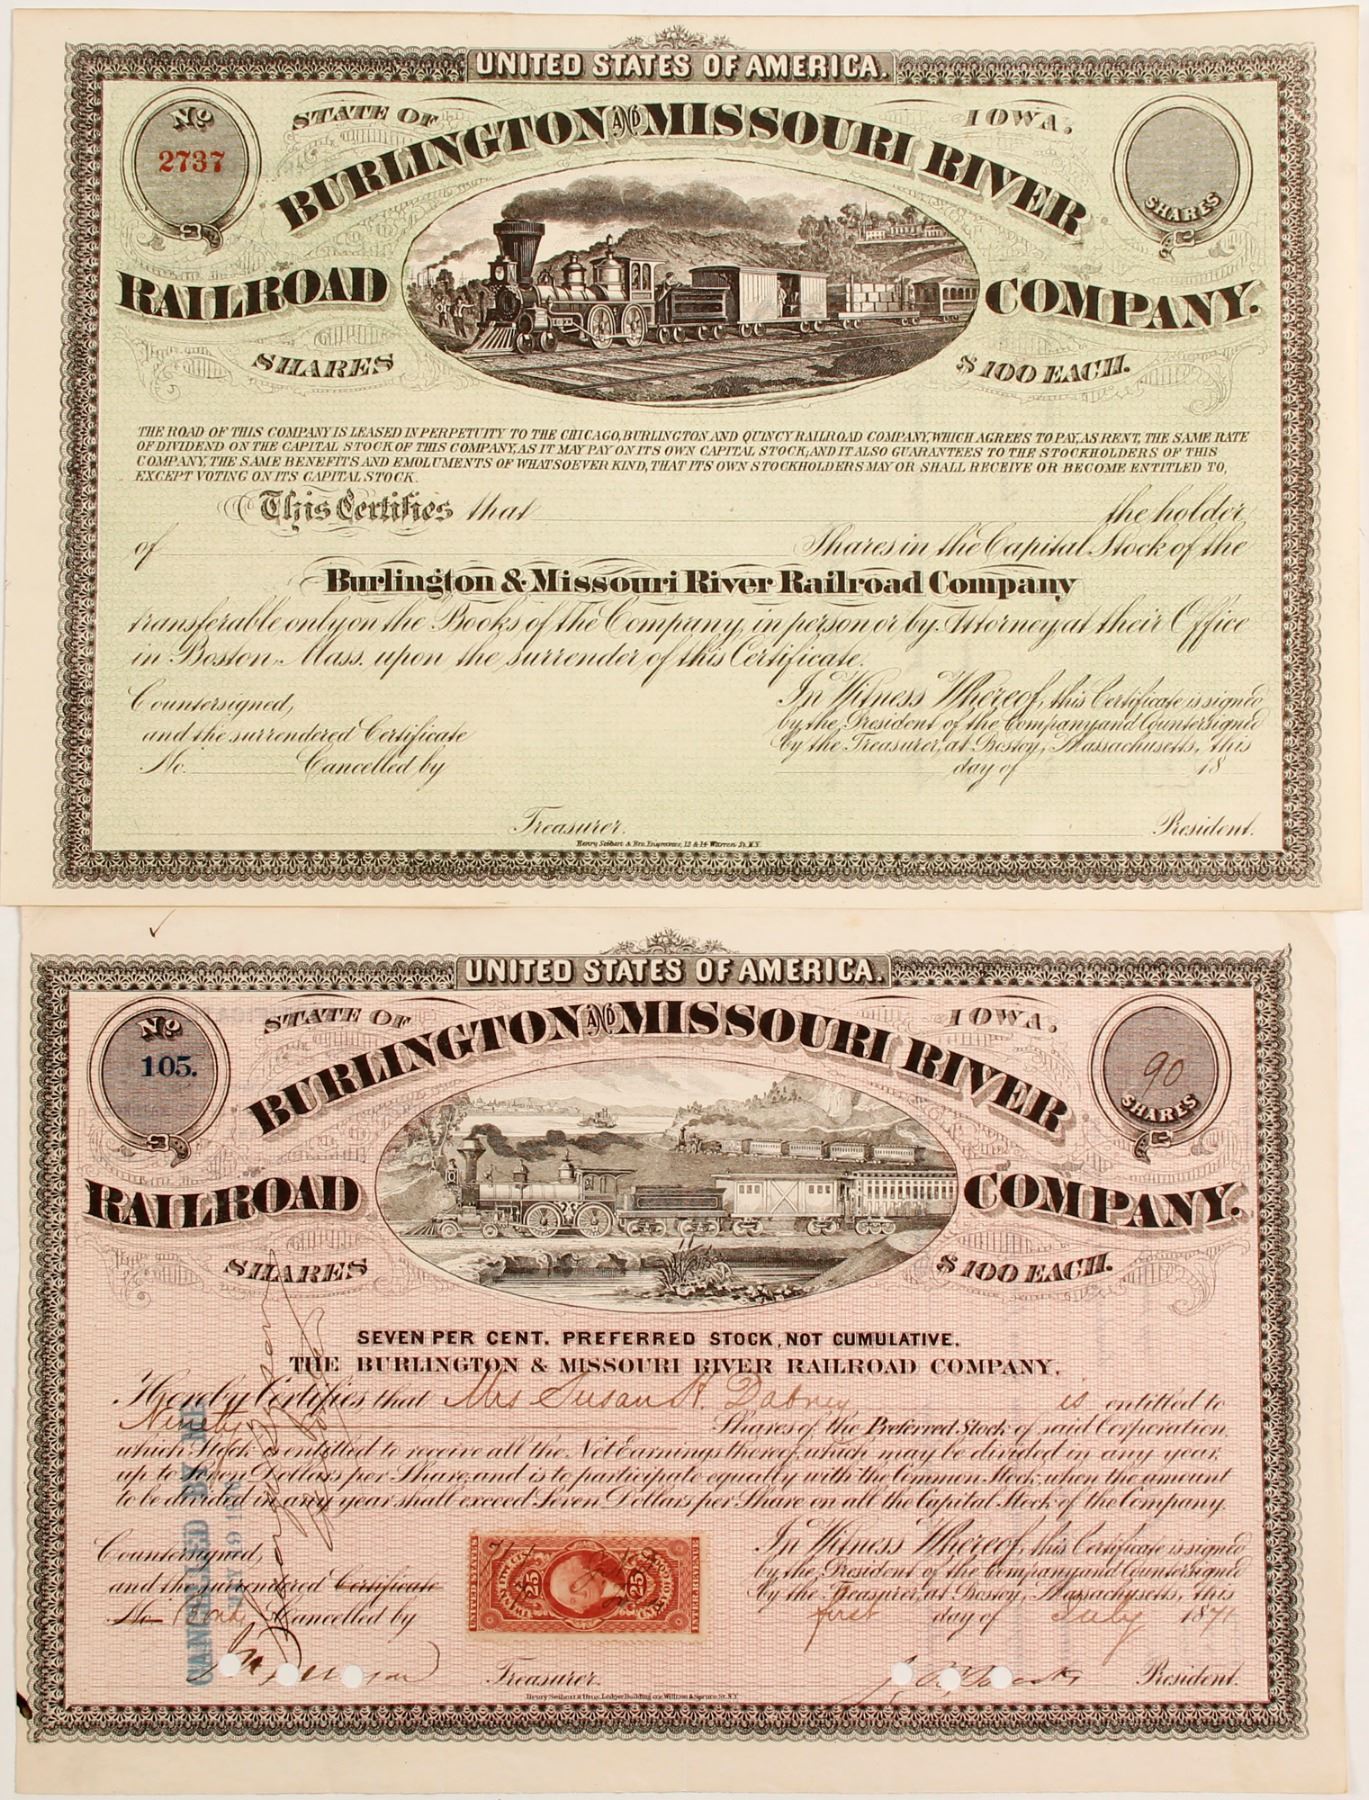 UNITED STATES OF AMERICA.
No 2737
STATE OF IOWA.
SHARES
BURLINGTON AND MISSOURI RIVER
RAILROAD COMPANY.
SHARES $100 EACH.
THE ROAD OF THIS COMPANY IS LEASED IN PERPETUITY TO THE CHICAGO, BURLINGTON AND QUINCY RAILROAD COMPANY, WHICH AGREES TO PAY, AS RENT, THE SAME RATE
OF DIVIDEND ON THE CAPITAL STOCK OF THIS COMPANY, AS IT MAY PAY ON ITS OWN CAPITAL STOCK; AND IT ALSO GUARANTEES TO THE STOCKHOLDERS OF THIS
COMPANY, THE SAME BENEFITS AND EMOLUMENTS OF WHATSOEVER KIND, THAT ITS OWN STOCKHOLDERS MAY OR SHALL RECEIVE OR BECOME ENTITLED TO,
EXCEPT VOTING ON ITS CAPITAL STOCK.
This Certifies that the holder
of Shares in the Capital Stock of the
Burlington & Missouri River Railroad Company
transferable only on the Books of the Company, in person or by Attorney, at their Office
in Boston, Mass. upon the surrender of this Certificate.
Countersigned,
and the surrendered Certificate
No. Cancelled by
Treasurer.
In Witness Whereof, this Certificate is signed
by the President of the Company and Countersigned
by the Treasurer, at Boston, Massachusetts, this
day of 18
President.
Henry Seibert & Bro. Engravers, 12 & 14 Warren St. N.Y.
UNITED STATES OF AMERICA.
No 105.
STATE OF IOWA.
90 SHARES
BURLINGTON AND MISSOURI RIVER
RAILROAD COMPANY.
SHARES $100 EACH.
SEVEN PER CENT. PREFERRED STOCK, NOT CUMULATIVE.
THE BURLINGTON & MISSOURI RIVER RAILROAD COMPANY,
Hereby Certifies that Mrs Susan H. Dabney is entitled to
Ninety Shares of the Preferred Stock of said Corporation,
which Stock is entitled to receive all the Net Earnings thereof, which may be divided in any year,
up to Seven Dollars per Share, and is to participate equally with the Common Stock, when the amount
to be divided in any year shall exceed Seven Dollars per Share on all the Capital Stock of the Company.
CANCELLED BY ME
Countersigned,
and the surrendered Certificate
No. Bonds Cancelled by
Treasurer.
UNITED STATES
25
25
In Witness Whereof, this Certificate is signed
by the President of the Company and Countersigned
by the Treasurer, at Boston, Massachusetts, this
first day of July 1871
President.
Henry Seibert & Bros. Ledger Building cor William & Spruce St. N.Y.